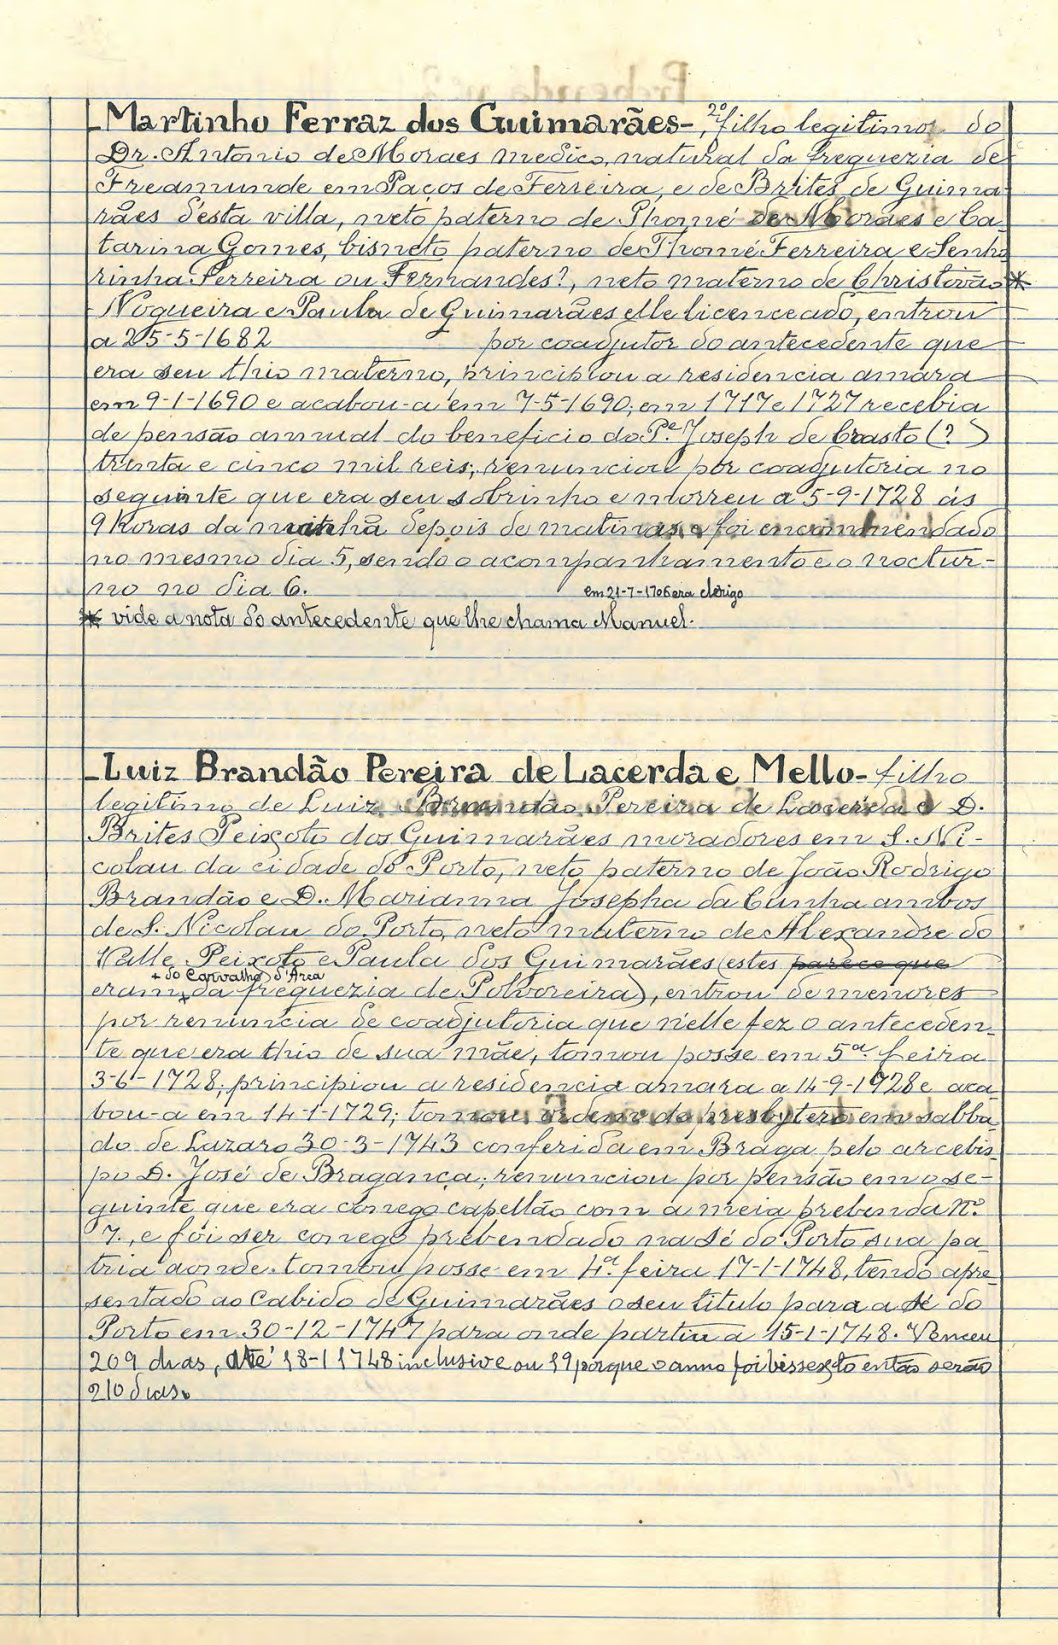 - Martinho Ferraz dos Guimarães -, 2º filho legitimo do
Dr. Antonio de Moraes medico, natural da freguezia de
Freamunde em Paços de Ferreira, e de Brites de Guima-
rães d'esta villa, neto paterno de Thomé de Moraes e Ca-
tarina Gomes, bisneto paterno de Thomé Ferreira e Senho
rinha Ferreira ou Fernandes?, neto materno de Christovão *
Nogueira e Paula de Guimarães elle licenceado, entrou
a 25-5-1682 por coadjutor do antecedente que
era seu thio materno, principiou a residencia amara
em 9-1-1690 e acabou-a em 7-5-1690; em 1717 e 1727 recebia
de pensão annual do beneficio do P.e Joseph de Crasto (?)
trinta e cinco mil reis; renunciou por coadjutoria no
seguinte que era seu sobrinho e morreu a 5-9-1728 ás
9 horas da manhã depois de matinas, e foi encommendado
no mesmo dia 5, sendo o acompanhamento e o noctur-
no no dia 6. em 21-7-1706 era clérigo
* vide a nota do antecedente que lhe chama Manuel.
- Luiz Brandão Pereira de Lacerda e Mello - filho
legitimo de Luiz Brandão Pereira de Lacerda e D.
Brites Peixoto dos Guimarães moradores em S. Ni-
colau da cidade do Porto, neto paterno de João Rodrigo
Brandão e D. Marianna Josepha da Cunha ambos
de S. Nicolau do Porto, neto materno de Alexandre do
Valle Peixoto e Paula dos Guimarães (estes parece que
+ do Carvalho d'Arca
eram + da freguezia de Polvoreira), entrou de menores
por renuncia de coadjutoria que n'elle fez o anteceden-
te que era thio de sua mãe, tomou posse em 5ª feira
3-6-1728; principiou a residencia amara a 14-9-1928 e aca
bou-a em 14-1-1729; tomou ordem de presbytero em sabba
do de Lazaro 30-3-1743 conferida em Braga pelo arcebis
po D. José de Bragança; renunciou por pensão em o se-
guinte que era conego capellão com a meia prebenda Nº
7., e foi ser conego prebendado na Sé do Porto sua pa
tria aonde tomou posse em 4ª feira 17-1-1748, tendo apre
sentado ao Cabido de Guimarães o seu titulo para a Sé do
Porto em 30-12-1747 para onde partiu a 15-1-1748. Venceu
209 dias, até 18-1 1748 inclusive ou 19 porque o anno foi bissexto então serão
210 dias.